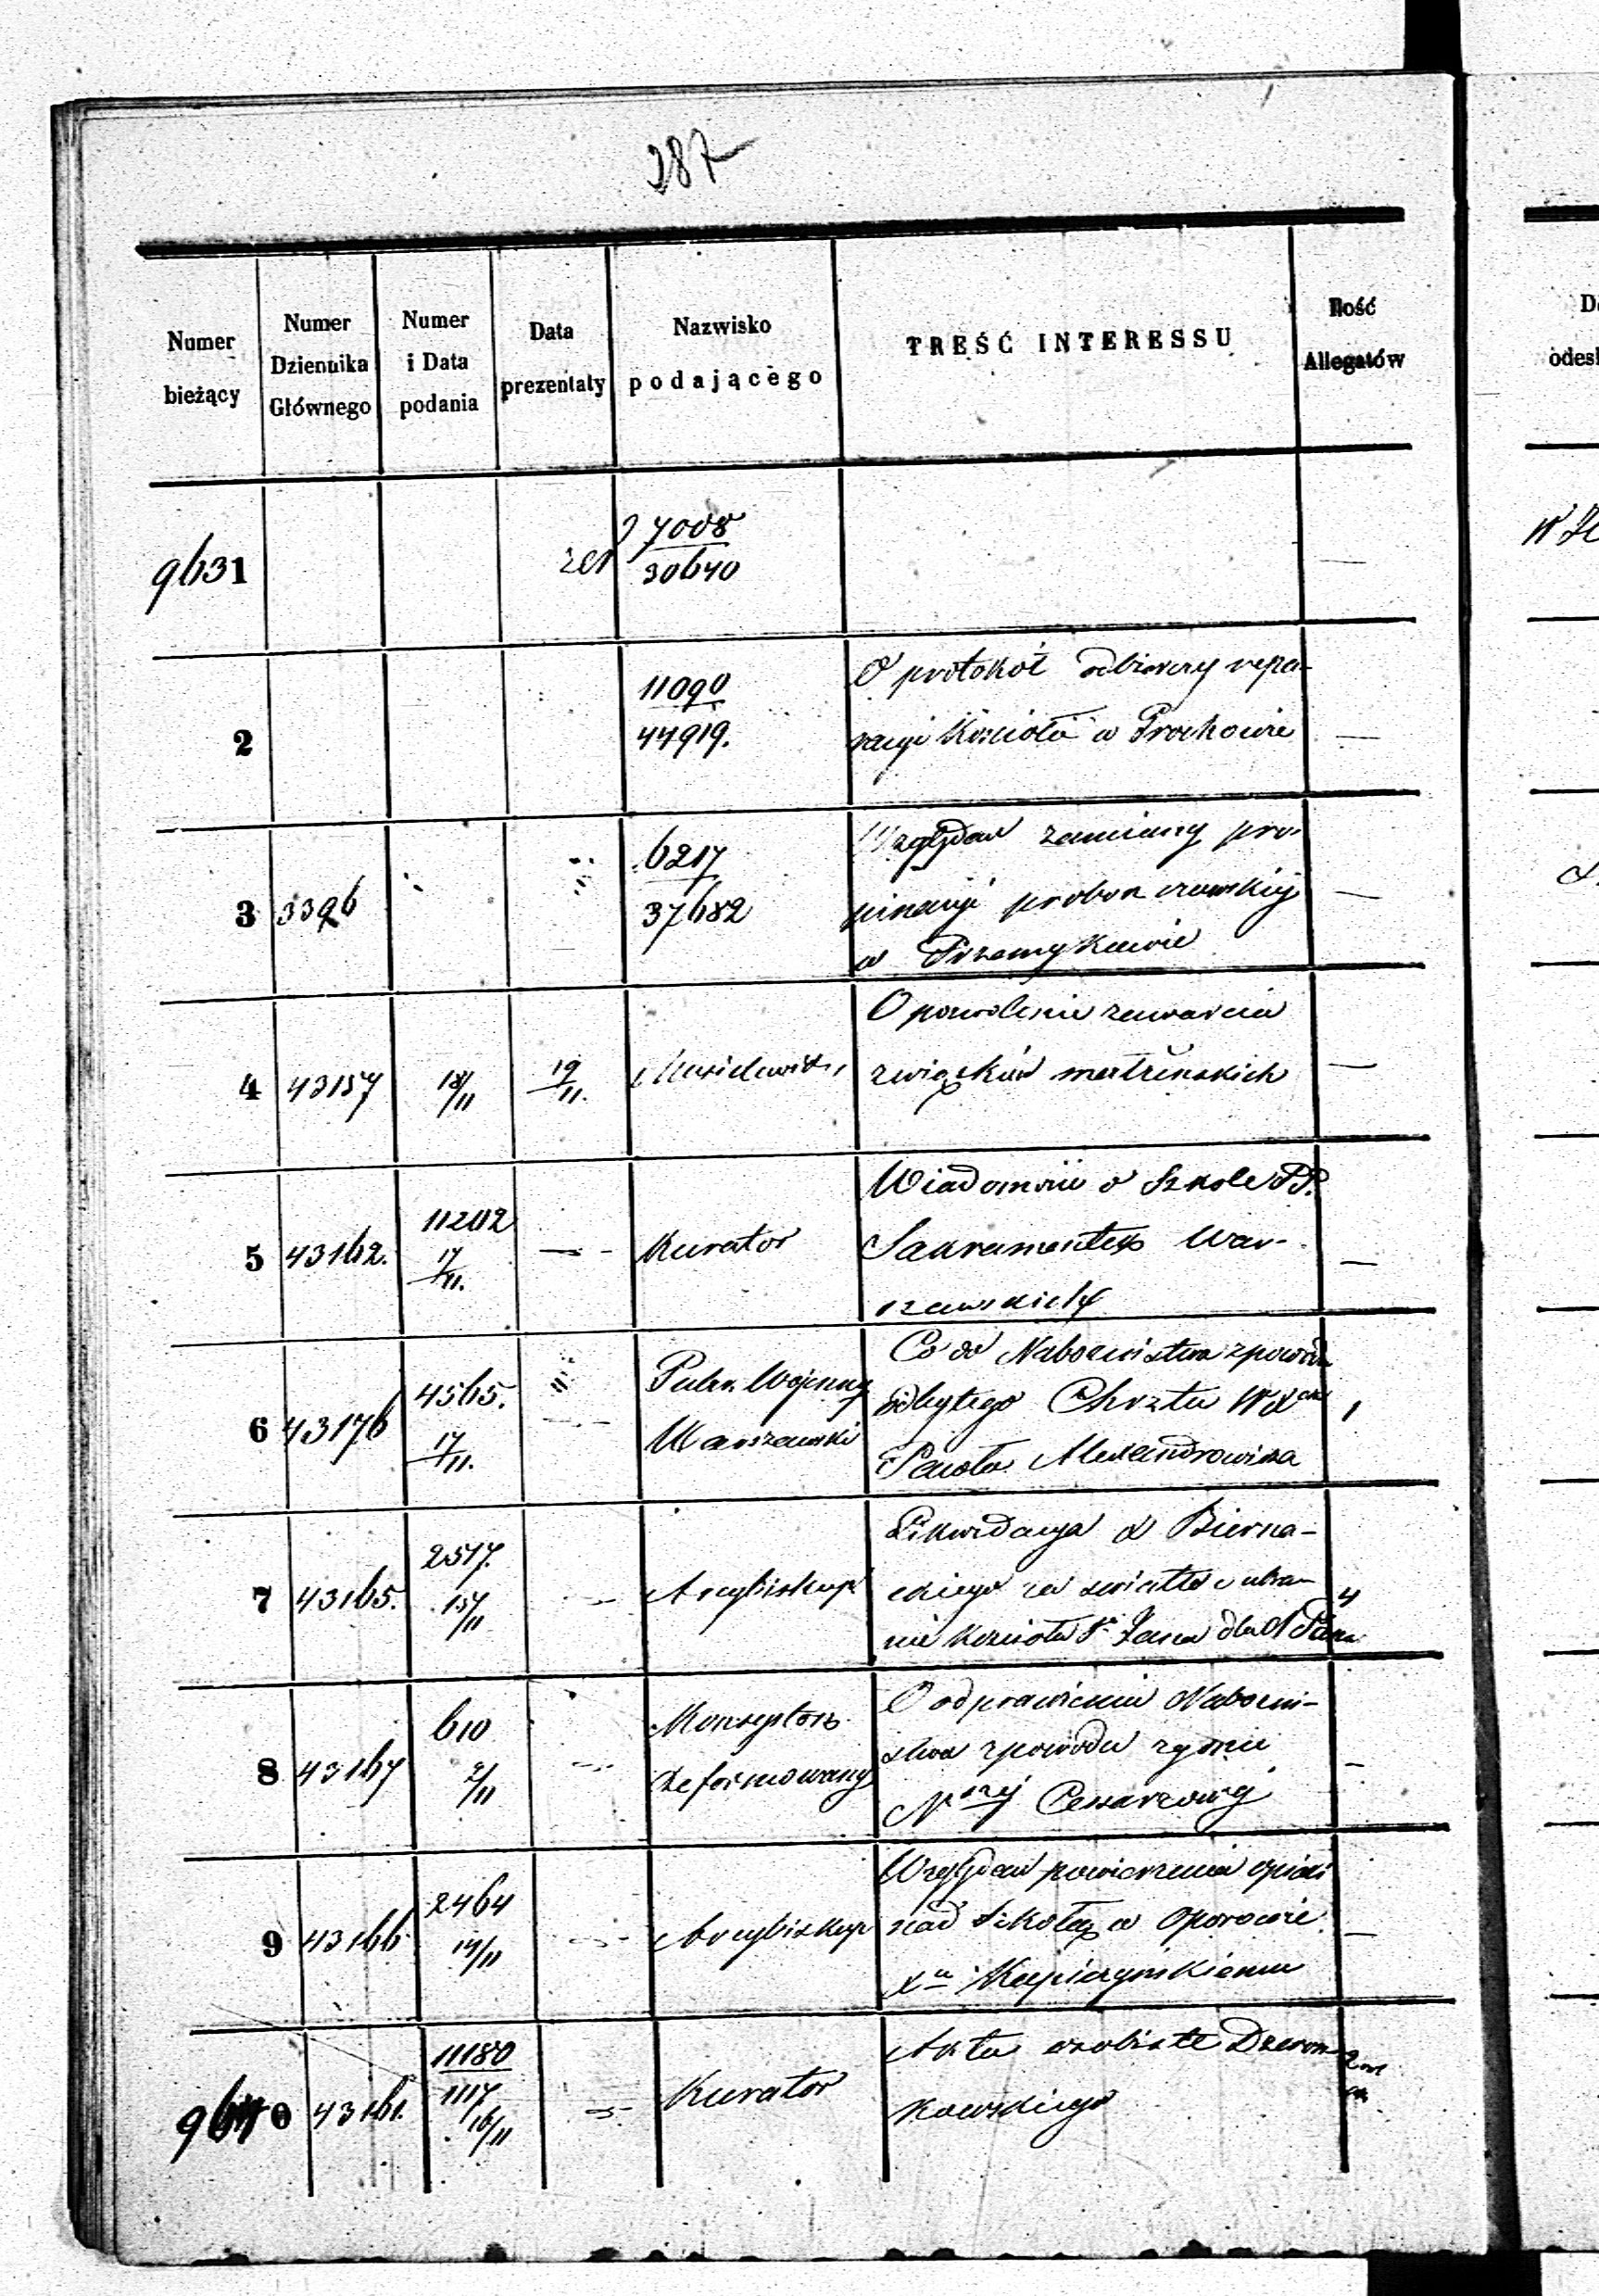 287
Numer bieżący
Numer Dziennika Głównego
Numer i Data podania
Data prezentaty
Nazwisko podającego
TREŚĆ INTERESSU
Ilość Allegatów
9631
7008
30640
2
11090
44919.
O protokół odbiorczy repa-
racyi Kościoła w Prochowie
3
3396
6217
37682
Względem zamiany pro-
pinacyi proboszczowskiej
w Przemykowie
4
43157
18/11
19/11.
O pozwolenie zawarcia
związków małżeńskich
5
43162.
11202
17/11.
Kurator
Wiadomości o Szkole PP.
Sakramentek War-
szawskich
6
43176
4565.
17/11.
Wojenny
Warszawski
Co do Nabożeństwa z powodu
odbytego Chrztu W X
Pawła Alexandrowicza
1
7
43165.
2517.
15/11
Arcybiskup
Likwidacya X Bierna-
ckiego za światło i ubra-
nie Kościoła Sgo Jana dla N Pana
4
8
43167
610
2/11
Konsystorz
Reformowany
O odprawieniu Nabożeń-
stwa z powodu zgonu
N szej Cesarzowej
9
43166
2464
14/11
Arcybiskup
Względem powierzenia opieki
nad szkołą w Oporowie
Xu Kapiczyńskiemu
9640
43161.
11180
1117
16/11
Kurator
Akta osobiste Dzwon
kowskiego